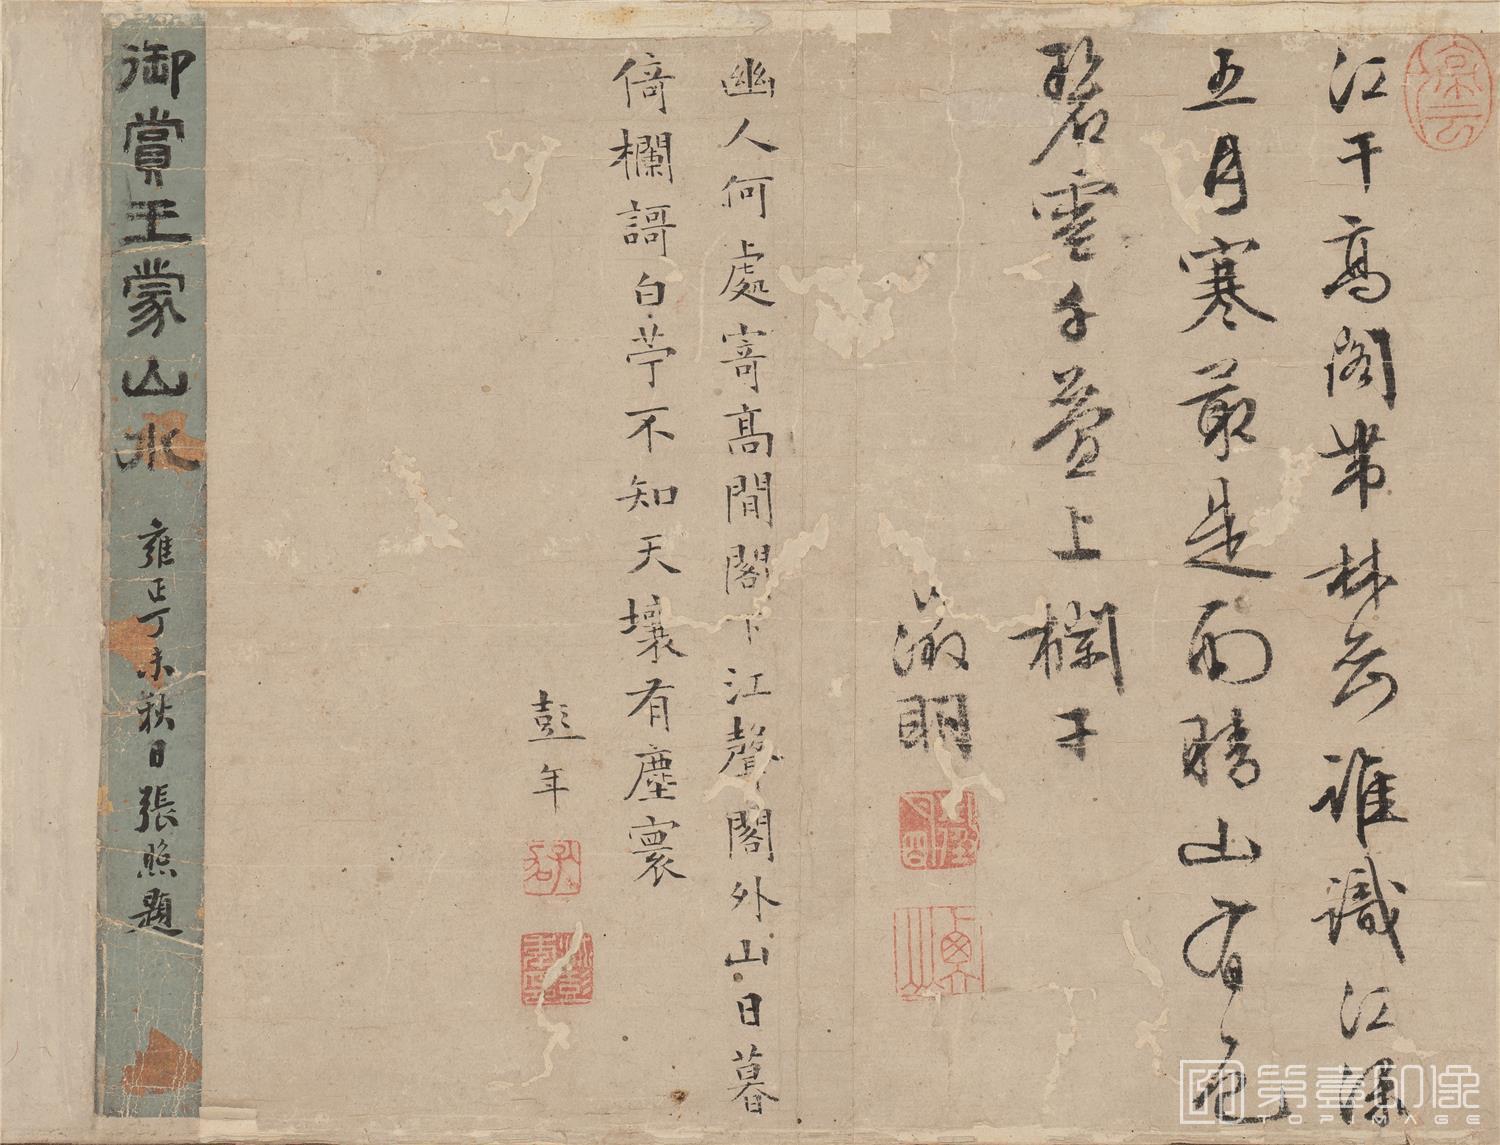 停云
江干高閣帶林巒誰識江深
五月寒最是雨晴山有色
碧雲千疊上欄干
徵明
衡山
幽人何處寄高閒閣下江聲閣外山日暮
倚欄謌白苧不知天壤有塵寰
彭年
御賞王蒙山水
雍正丁未秋日張照題
第壹印像
TOPIMAGE